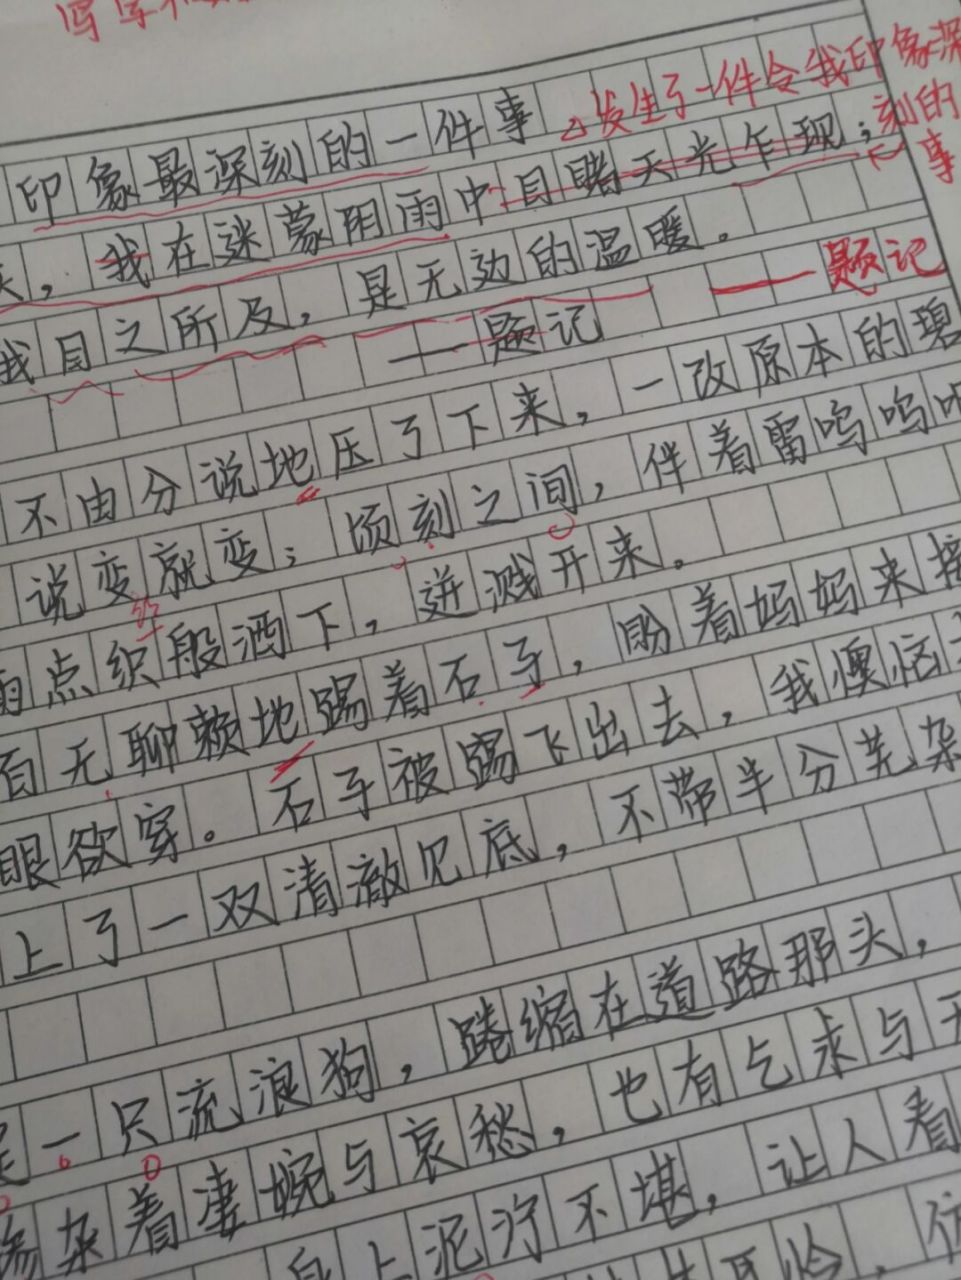 印象最深刻的一件事
发生了一件令我印象深
刻的
事
，我在迷蒙阴雨中目睹天光乍现；
我目之所及，是无边的温暖。
——题记
——题记
不由分说地压了下来，一改原本的碧
说变就变；顷刻之间，伴着雷鸣呜
雨点织般洒下，迸溅开来。
百无聊赖地踢着石子，盼着妈妈来接
眼欲穿。石子被踢飞出去，我懊恼
上了一双清澈见底，不带半分芜杂
是一只流浪狗，蜷缩在道路那头，
掺杂着凄婉与哀愁，也有乞求与
身上泥泞不堪，让人看